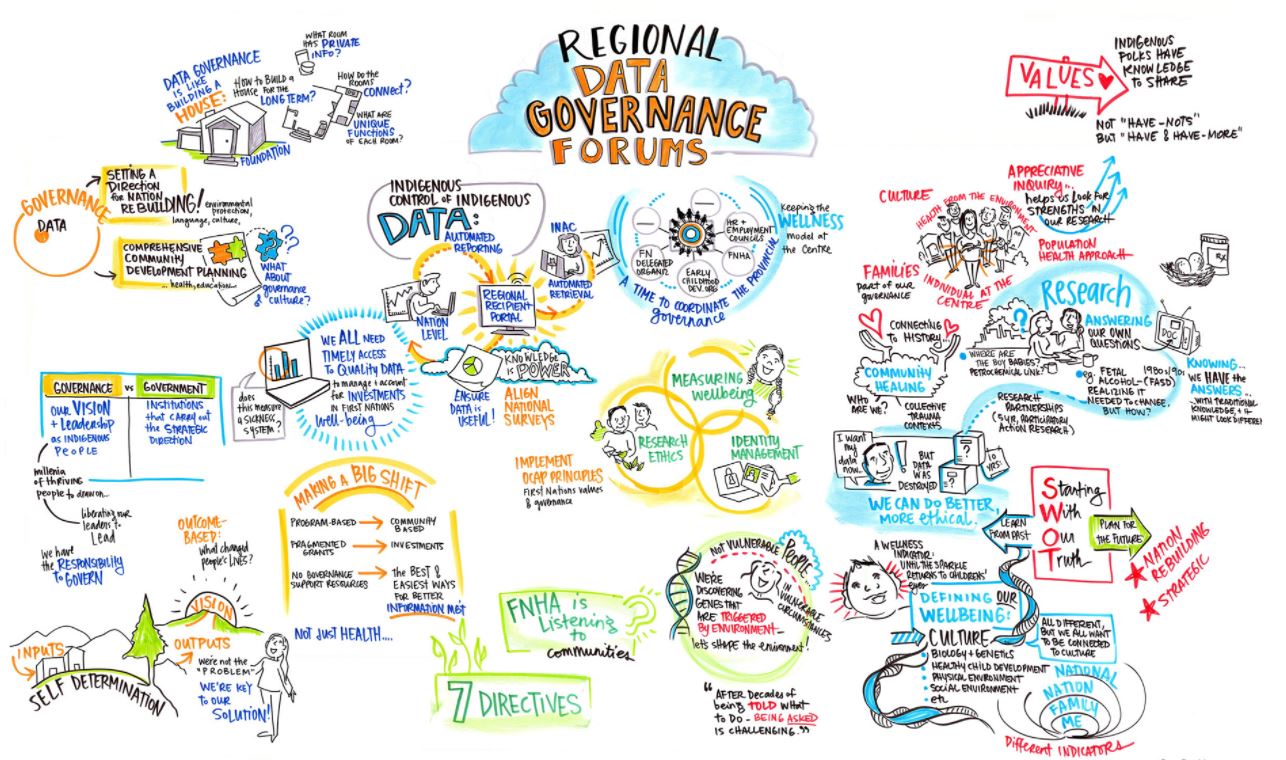 REGIONAL
DATA
GOVERNANCE
FORUMS
DATA GOVERNANCE
IS LIKE
BUILDING A
HOUSE:
HOW TO BUILD A
HOUSE FOR THE
LONG TERM?
WHAT ROOM
HAS PRIVATE
INFO?
HOW DO THE
ROOMS
CONNECT?
WHAT ARE
UNIQUE
FUNCTIONS
OF EACH ROOM?
FOUNDATION
GOVERNANCE
DATA
SETTING A
DIRECTION
for NATION
REBUILDING!
environmental
protection,
language, culture,
COMPREHENSIVE
COMMUNITY
DEVELOPMENT PLANNING
... health, education...
??
WHAT
ABOUT
governance
& culture?
GOVERNANCE vs GOVERNMENT
OUR VISION
+ Leadership
as INDIGENOUS
PEOPLE
INSTITUTIONS
that CARRY OUT
the STRATEGIC
DIRECTION
millenia
of thriving
people to draw on...
liberating our
leaders to
Lead
We have
the RESPONSIBILITY
to GOVERN
OUTCOME-
BASED:
What changed
people's LIVES?
VISION
INPUTS
OUTPUTS
SELF DETERMINATION
We're not the
"PROBLEM"
WE'RE KEY
TO OUR
SOLUTION!
INDIGENOUS
CONTROL OF INDIGENOUS
DATA:
AUTOMATED
REPORTING
INAC
NATION
LEVEL
REGIONAL
RECIPIENT
PORTAL
AUTOMATED
RETRIEVAL
KNOWLEDGE
is POWER
ENSURE
DATA is
USEFUL!
ALIGN
NATIONAL
SURVEYS
IMPLEMENT
OCAP PRINCIPLES
First Nations values
& governance
WE ALL NEED
TIMELY ACCESS
TO QUALITY DATA
to manage + account
for INVESTMENTS
IN FIRST NATIONS
Well-being
does
this measure
a SICKNESS
SYSTEM?
MAKING A BIG SHIFT
PROGRAM-BASED → COMMUNITY
BASED
FRAGMENTED
GRANTS → INVESTMENTS
NO GOVERNANCE
SUPPORT RESOURCES → the BEST &
EASIEST WAYS
FOR BETTER
INFORMATION MGT
NOT JUST HEALTH....
HR +
EMPLOYMENT
COUNCILS
FNHA
EARLY
CHILDHOOD
DEV. ORG
FN
DELEGATED
ORGANIZ
A TIME TO COORDINATE THE PROVINCIAL
governance
Keeping the
WELLNESS
model at
the Centre
MEASURING
Wellbeing
RESEARCH
ETHICS
IDENTITY
MANAGEMENT
FNHA is
Listening
to
communities
7 DIRECTIVES
NOT VULNERABLE PEOPLE
IN VULNERABLE
CIRCUMSTANCES
WE'RE
DISCOVERING
GENES THAT
ARE TRIGGERED
BY ENVIRONMENT—
let's SHAPE the environment!
"AFTER DECADES of
being TOLD WHAT
to DO - BEING ASKED
IS CHALLENGING."
VALUES
INDIGENOUS
FOLKS HAVE
KNOWLEDGE
to SHARE
NOT "HAVE-NOTS"
BUT "HAVE & HAVE-MORE"
APPRECIATIVE
INQUIRY...
helps us Look for
STRENGTHS IN
OUR RESEARCH
CULTURE
HEALTH FROM THE ENVIRONMENT
POPULATION
HEALTH APPROACH
FAMILIES
part of our
governance
INDIVIDUAL AT THE
CENTRE
RX
Research
?
ANSWERING
OUR OWN
QUESTIONS
CONNECTING
to HISTORY...
COMMUNITY
HEALING
WHO
ARE WE?
COLLECTIVE
TRAUMA
CONTEXTS
WHERE ARE
THE BOY BABIES?
PETROCHEMICAL LINK?
eg. FETAL 1980s/90s
ALCOHOL—(FASD)
REALIZING IT
NEEDED to CHANGE,
BUT HOW?
KNOWING...
WE HAVE the
ANSWERS...
...WITH TRADITIONAL
KNOWLEDGE, + it
MIGHT LOOK DIFFEREN
RESEARCH
PARTNERSHIPS
(5 YR, PARTICIPATORY
ACTION RESEARCH)
I want
my
data
now..
BUT
DATA
WAS
DESTROYED
...?
...?
10
YRS.
WE CAN DO BETTER,
MORE ethical.
LEARN
FROM PAST
Starting
With
Our
Truth
PLAN FOR
the FUTURE
NATION
REBUILDING
STRATEGIC
A WELLNESS
INDICATOR:
UNTIL THE SPARKLE
RETURNS TO CHILDREN'S
eyes
DEFINING OUR
WELLBEING!
CULTURE
• BIOLOGY + GENETICS
• HEALTHY CHILD DEVELOPMENT
• PHYSICAL ENVIRONMENT
• SOCIAL ENVIRONMENT
• etc
ALL DIFFERENT,
BUT WE ALL WANT
TO BE CONNECTED
to CULTURE
NATIONAL
NATION
FAMILY
ME
Different INDICATORS